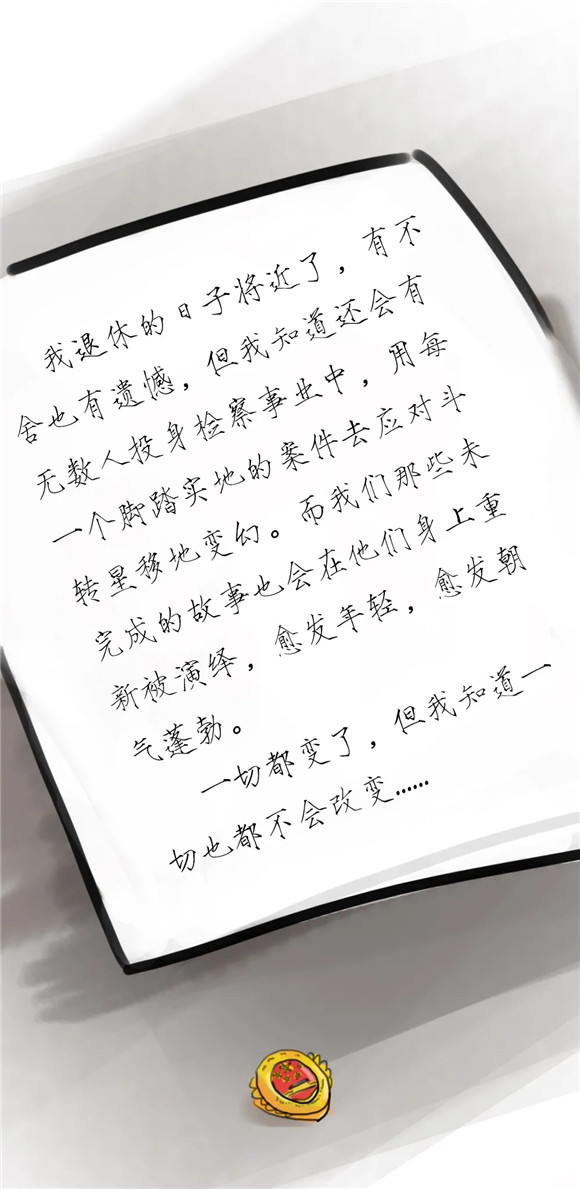 我退休的日子将近了，有不
舍也有遗憾，但我知道还会有
无数人投身检察事业中，用每
一个脚踏实地的案件去应对斗
转星移地变幻。而我们那些未
完成的故事也会在他们身上重
新被演绎，愈发年轻，愈发朝
气蓬勃。
一切都变了，但我知道一
切也都不会改变……